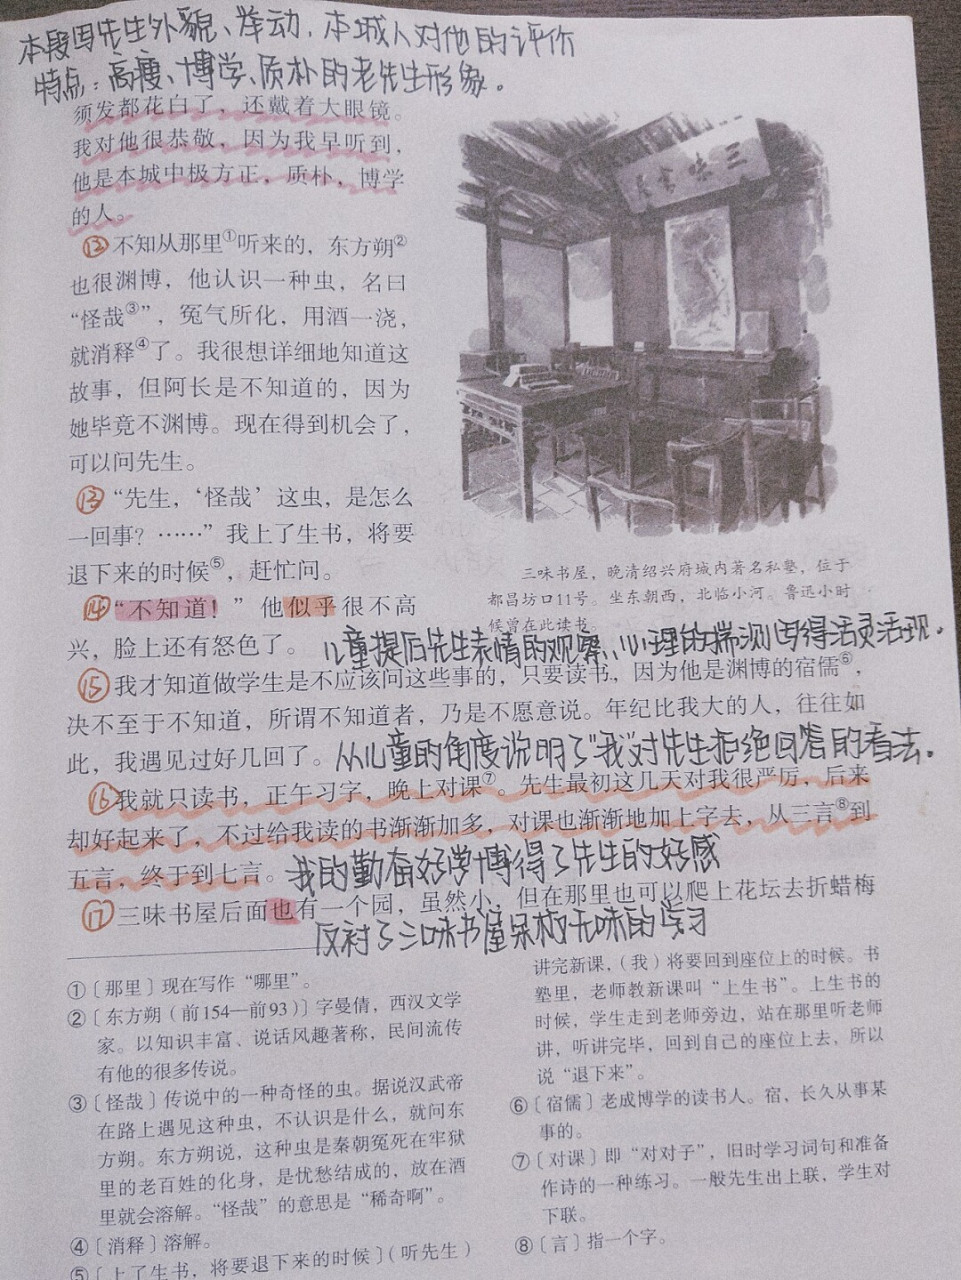 本段写先生外貌、举动，本城人对他的评价
特点：高瘦、博学、质朴的老先生形象。
须发都花白了，还戴着大眼镜。
我对他很恭敬，因为我早听到，
他是本城中极方正，质朴，博学
的人。
⑫不知从那里①听来的，东方朔②
也很渊博，他认识一种虫，名曰
“怪哉③”，冤气所化，用酒一浇，
就消释④了。我很想详细地知道这
故事，但阿长是不知道的，因为
她毕竟不渊博。现在得到机会了，
可以问先生。
⑬“先生，‘怪哉’这虫，是怎么
一回事？……”我上了生书，将要
退下来的时候⑤，赶忙问。
⑭“不知道！”他似乎很不高
兴，脸上还有怒色了。
三味书屋
三味书屋，晚清绍兴府城内著名私塾，位于
都昌坊口11号。坐东朝西，北临小河。鲁迅小时
候曾在此读书。
儿童提后先生表情的观察、心理的揣测写得活灵活现。
⑮我才知道做学生是不应该问这些事的，只要读书，因为他是渊博的宿儒⑥，
决不至于不知道，所谓不知道者，乃是不愿意说。年纪比我大的人，往往如
此，我遇见过好几回了。
从儿童的角度说明了“我”对先生拒绝回答的看法。
⑯我就只读书，正午习字，晚上对课⑦。先生最初这几天对我很严厉，后来
却好起来了，不过给我读的书渐渐加多，对课也渐渐地加上字去，从三言⑧到
五言，终于到七言。
我的勤奋好学博得了先生的好感
⑰三味书屋后面也有一个园，虽然小，但在那里也可以爬上花坛去折蜡梅
反衬了三味书屋呆板无味的学习
①〔那里〕现在写作“哪里”。
②〔东方朔（前154—前93）〕字曼倩，西汉文学
家。以知识丰富、说话风趣著称，民间流传
有他的很多传说。
③〔怪哉〕传说中的一种奇怪的虫。据说汉武帝
在路上遇见这种虫，不认识是什么，就问东
方朔。东方朔说，这种虫是秦朝冤死在牢狱
里的老百姓的化身，是忧愁结成的，放在酒
里就会溶解。“怪哉”的意思是“稀奇啊”。
④〔消释〕溶解。
⑤〔上了生书，将要退下来的时候〕（听先生）
讲完新课，（我）将要回到座位上的时候。书
塾里，老师教新课叫“上生书”。上生书的
时候，学生走到老师旁边，站在那里听老师
讲，听讲完毕，回到自己的座位上去，所以
说“退下来”。
⑥〔宿儒〕老成博学的读书人。宿，长久从事某
事的。
⑦〔对课〕即“对对子”，旧时学习词句和准备
作诗的一种练习。一般先生出上联，学生对
下联。
⑧〔言〕指一个字。